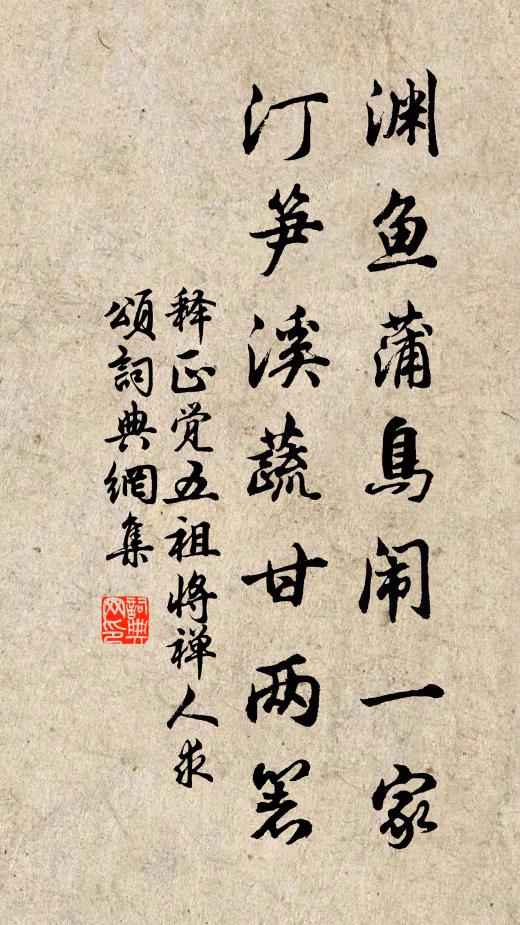 渊鱼蒲鳥闹一家
汀笋溪蔬甘两箸
释正觉五祖将禅人求
頌詞典網集
詞典
网印